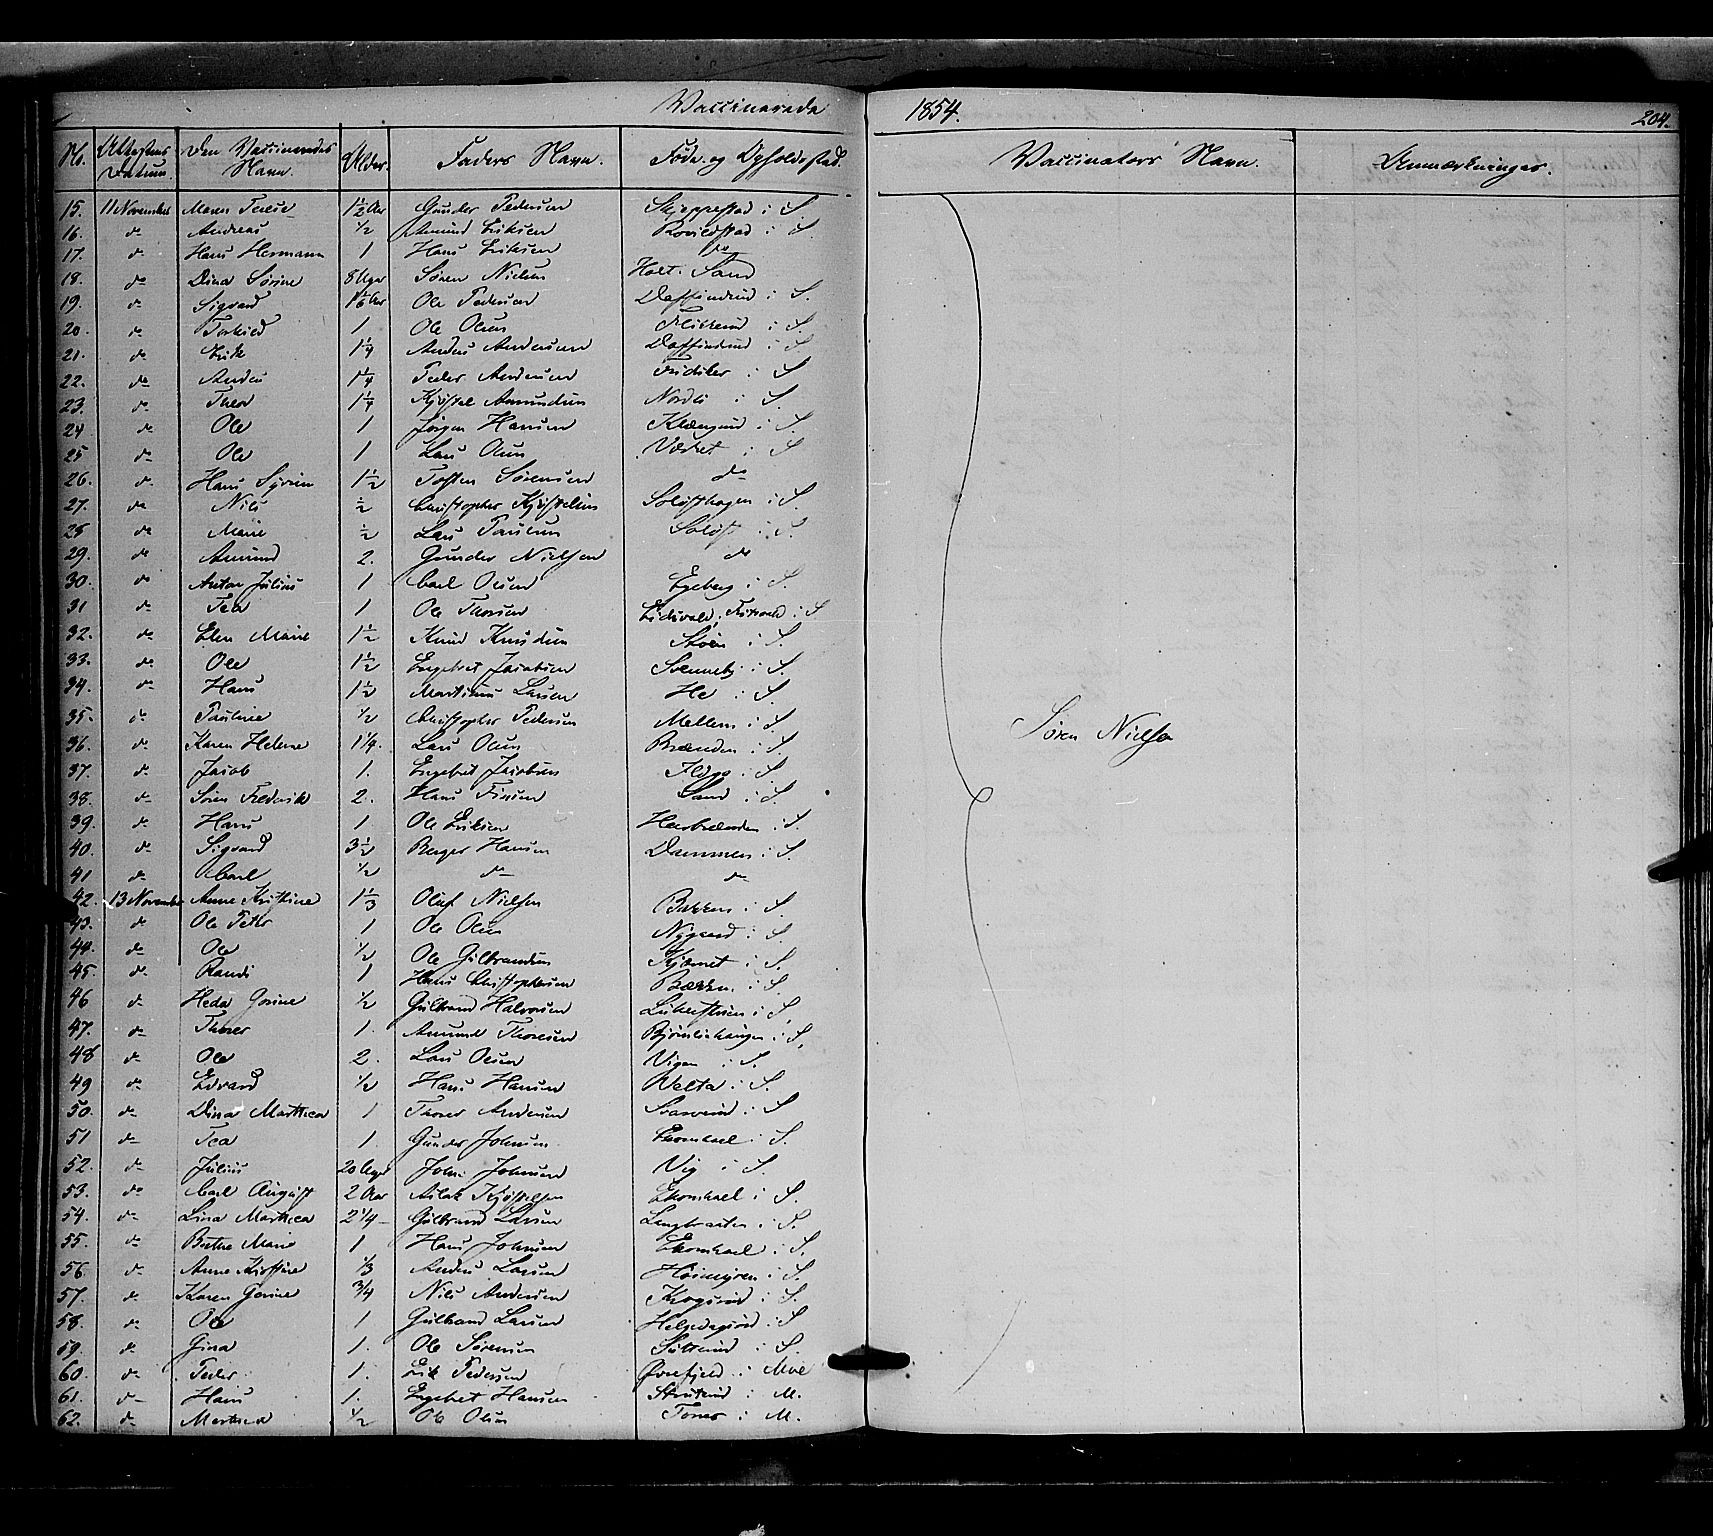 Vaccinerede 1854. 204.
No. Attestens Datum. Den Vaccineredes Navn. Alder. Faders Navn. Føde- og Opholdssted. Vaccinators Navn. Anmærkninger.
15. 11 November Maren 1½ Aar Gunder Pedersen Skjeppestad i S.
16. do Andreas ½ Amund Eriksen i S.
17. do Hans Hermann 1 Hans Eriksen do
18. do Dina Sørine 8 Uger Søren Nielsen Sand
19. do Sigvard Ole Pedersen i S.
20. do 1 Ole Olsen i S.
21. do Erik 1¼ Anders Andersen i S.
22. do Anders 1¼ Peder Andersen i S
23. do Theo 1¼ Kjøstel Amundsen Nordli i S.
24 do Ole 1 Jørgen Hansen i S.
25 do Ole 1 Lars Olsen i S
26. do Hans 1½ Tosten Sørensen do
27. do Nils ½ Christopher Kjøstelsen i S.
28 do Marie ½ Lars Paulsen i S.
29. do Amund 2. Gunder Nielsen do
30. do Anton Julius 1 Carl Olsen Egeberg i S.
31 do Tea 1 Ole Thorsen i S
32. do Elen Marie 1½ Knud Knudsen Støen i S.
33. do Ole 1½ Engebret Jacobsen Svenneby i S.
34. do Hans 1½ Martinus Larsen He i S.
35. do Pauline ½ Christopher Pedersen Mellem i S.
36. do Karen Helene 1¼. Lars Olsen Brænden i S.
37. do Jacob 1. Engebret Jacobsen i S
38. do Søren Frederik 2. Hans Sand i S.
39. do Hans 1 Ole Eriksen i S.
40. do Sigvard 3½ Berger Hansen Dammen i S.
41 do Carl ½ do do
42. 13 November Anne Kristine 1⅓ Oluf Nielsen i S.
43. do Ole Peter 1 Ole Olsen Nygaard i S.
44. do Ole ½ Ole Gulbrandsen Kjernet i S.
45. do Randi 1 Hans Christophersen i S.
46 do Heda Gorine ½ Gulbrand Halvorsen i S,
47. do Thorer 1. Amund Thoresen i S.
48 do Ole 2. Lars Olsen Vigen i S.
49 do Edvard ½ Hans Hansen i S.
50. do Dina Marthea 1 Thorer Andersen i S
51 do Tea 1. Gunder Johnsen i S.
52. do Julius 20 Uger John Johnsen Vig i S.
53. do Carl August 2 Aar Aslak Kjøstelsen i S.
54. do Lina Marthea 2¼ Gulbrand Larsen i S.
55. do Berthe Marie 1 Hans Johnsen i S.
56. do Anne Kirstine ⅓ Anders Larsen i S.
57. do Karen Gorine ¾ Nils Andersen i S.
58. do Ole 1 Gulbrand Larsen i S
59. do Gina 1. Ole Sørensen i S.
60. do Peder 1. Erik Pedersen Øvrefjeld i Moe
61. do Hans 1. Engebret Hansen i M.
62. do ½ Ole Olsen i M.
Søren Nielsen